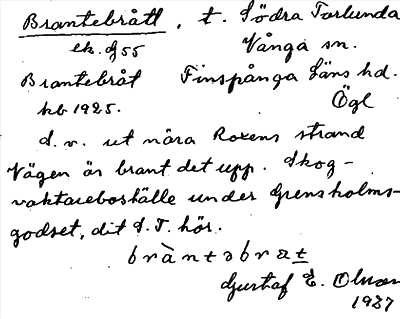 Brantebrått, t. Södra Torlunda
ek. bl 55 Vånga sn.
Brantebråt Finspånga Läns hd.
kb 1925. Ögl
d. v. ut nära Roxens strand
Vägen är brant det upp. Skog-
vaktareboställe under Grensholms-
godset, dit S. T. hör.
bràntəbrat
Gustaf E. Olsson
1937